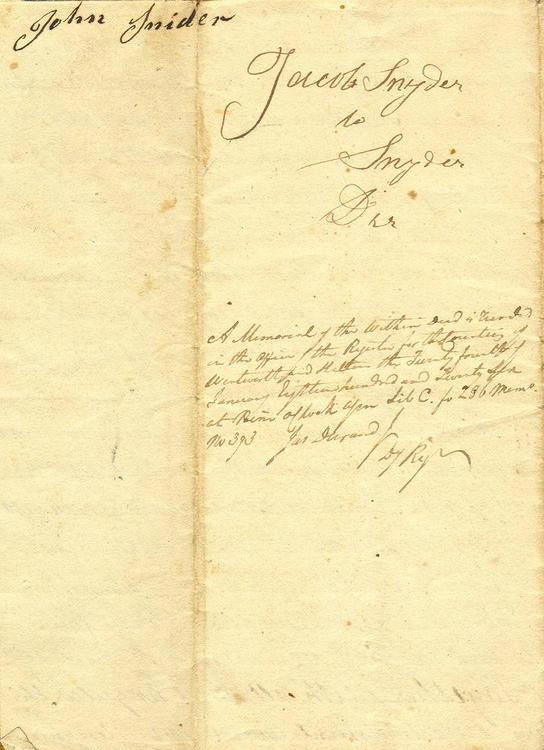 John Snider
Jacob Snyder
to
Snyder
A Memorial of the Within Deed is
in the Office of the Register for the Counties of
Wentworth and Halton the Twenty fourth of
January Eighteen hundred and Twenty
at Nine oClock Lib C. fo 236 Memo.
No 393 Jas Durand
Dy Regr